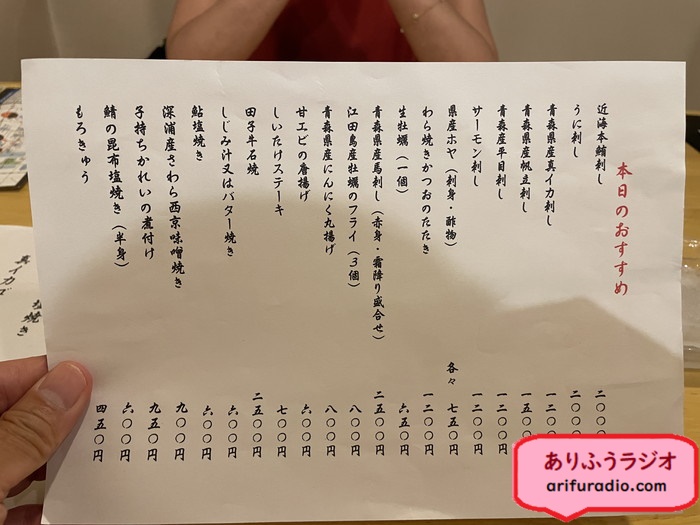 本日のおすすめ
近海本鮪刺し 二〇〇〇
うに刺し 二〇〇〇
青森県産真イカ刺し 一二〇〇
青森県産帆立刺し 一五〇〇
青森産平目刺し 一二〇〇
サーモン刺し 一二〇〇
県産ホヤ（刺身・酢物） 各々 七五〇円
わら焼きかつおのたたき 一二〇〇円
生牡蠣（一個） 六五〇円
青森県産馬刺し（赤身・霜降り盛合せ） 二五〇〇円
江田島産牡蠣のフライ（３個） 八〇〇円
青森県産にんにく丸揚げ 八〇〇円
甘エビの唐揚げ 六〇〇円
しいたけステーキ 七〇〇円
田子牛石焼 二五〇〇円
しじみ汁又はバター焼き 六〇〇円
鮎塩焼き 六〇〇円
深浦産さわら西京味噌焼き 九〇〇円
子持ちかれいの煮付け 九五〇円
鯖の昆布塩焼き（半身） 六〇〇円
もろきゅう 四五〇円
塩焼き
真イカゴ
ありふうラジオ
arifuradio.com